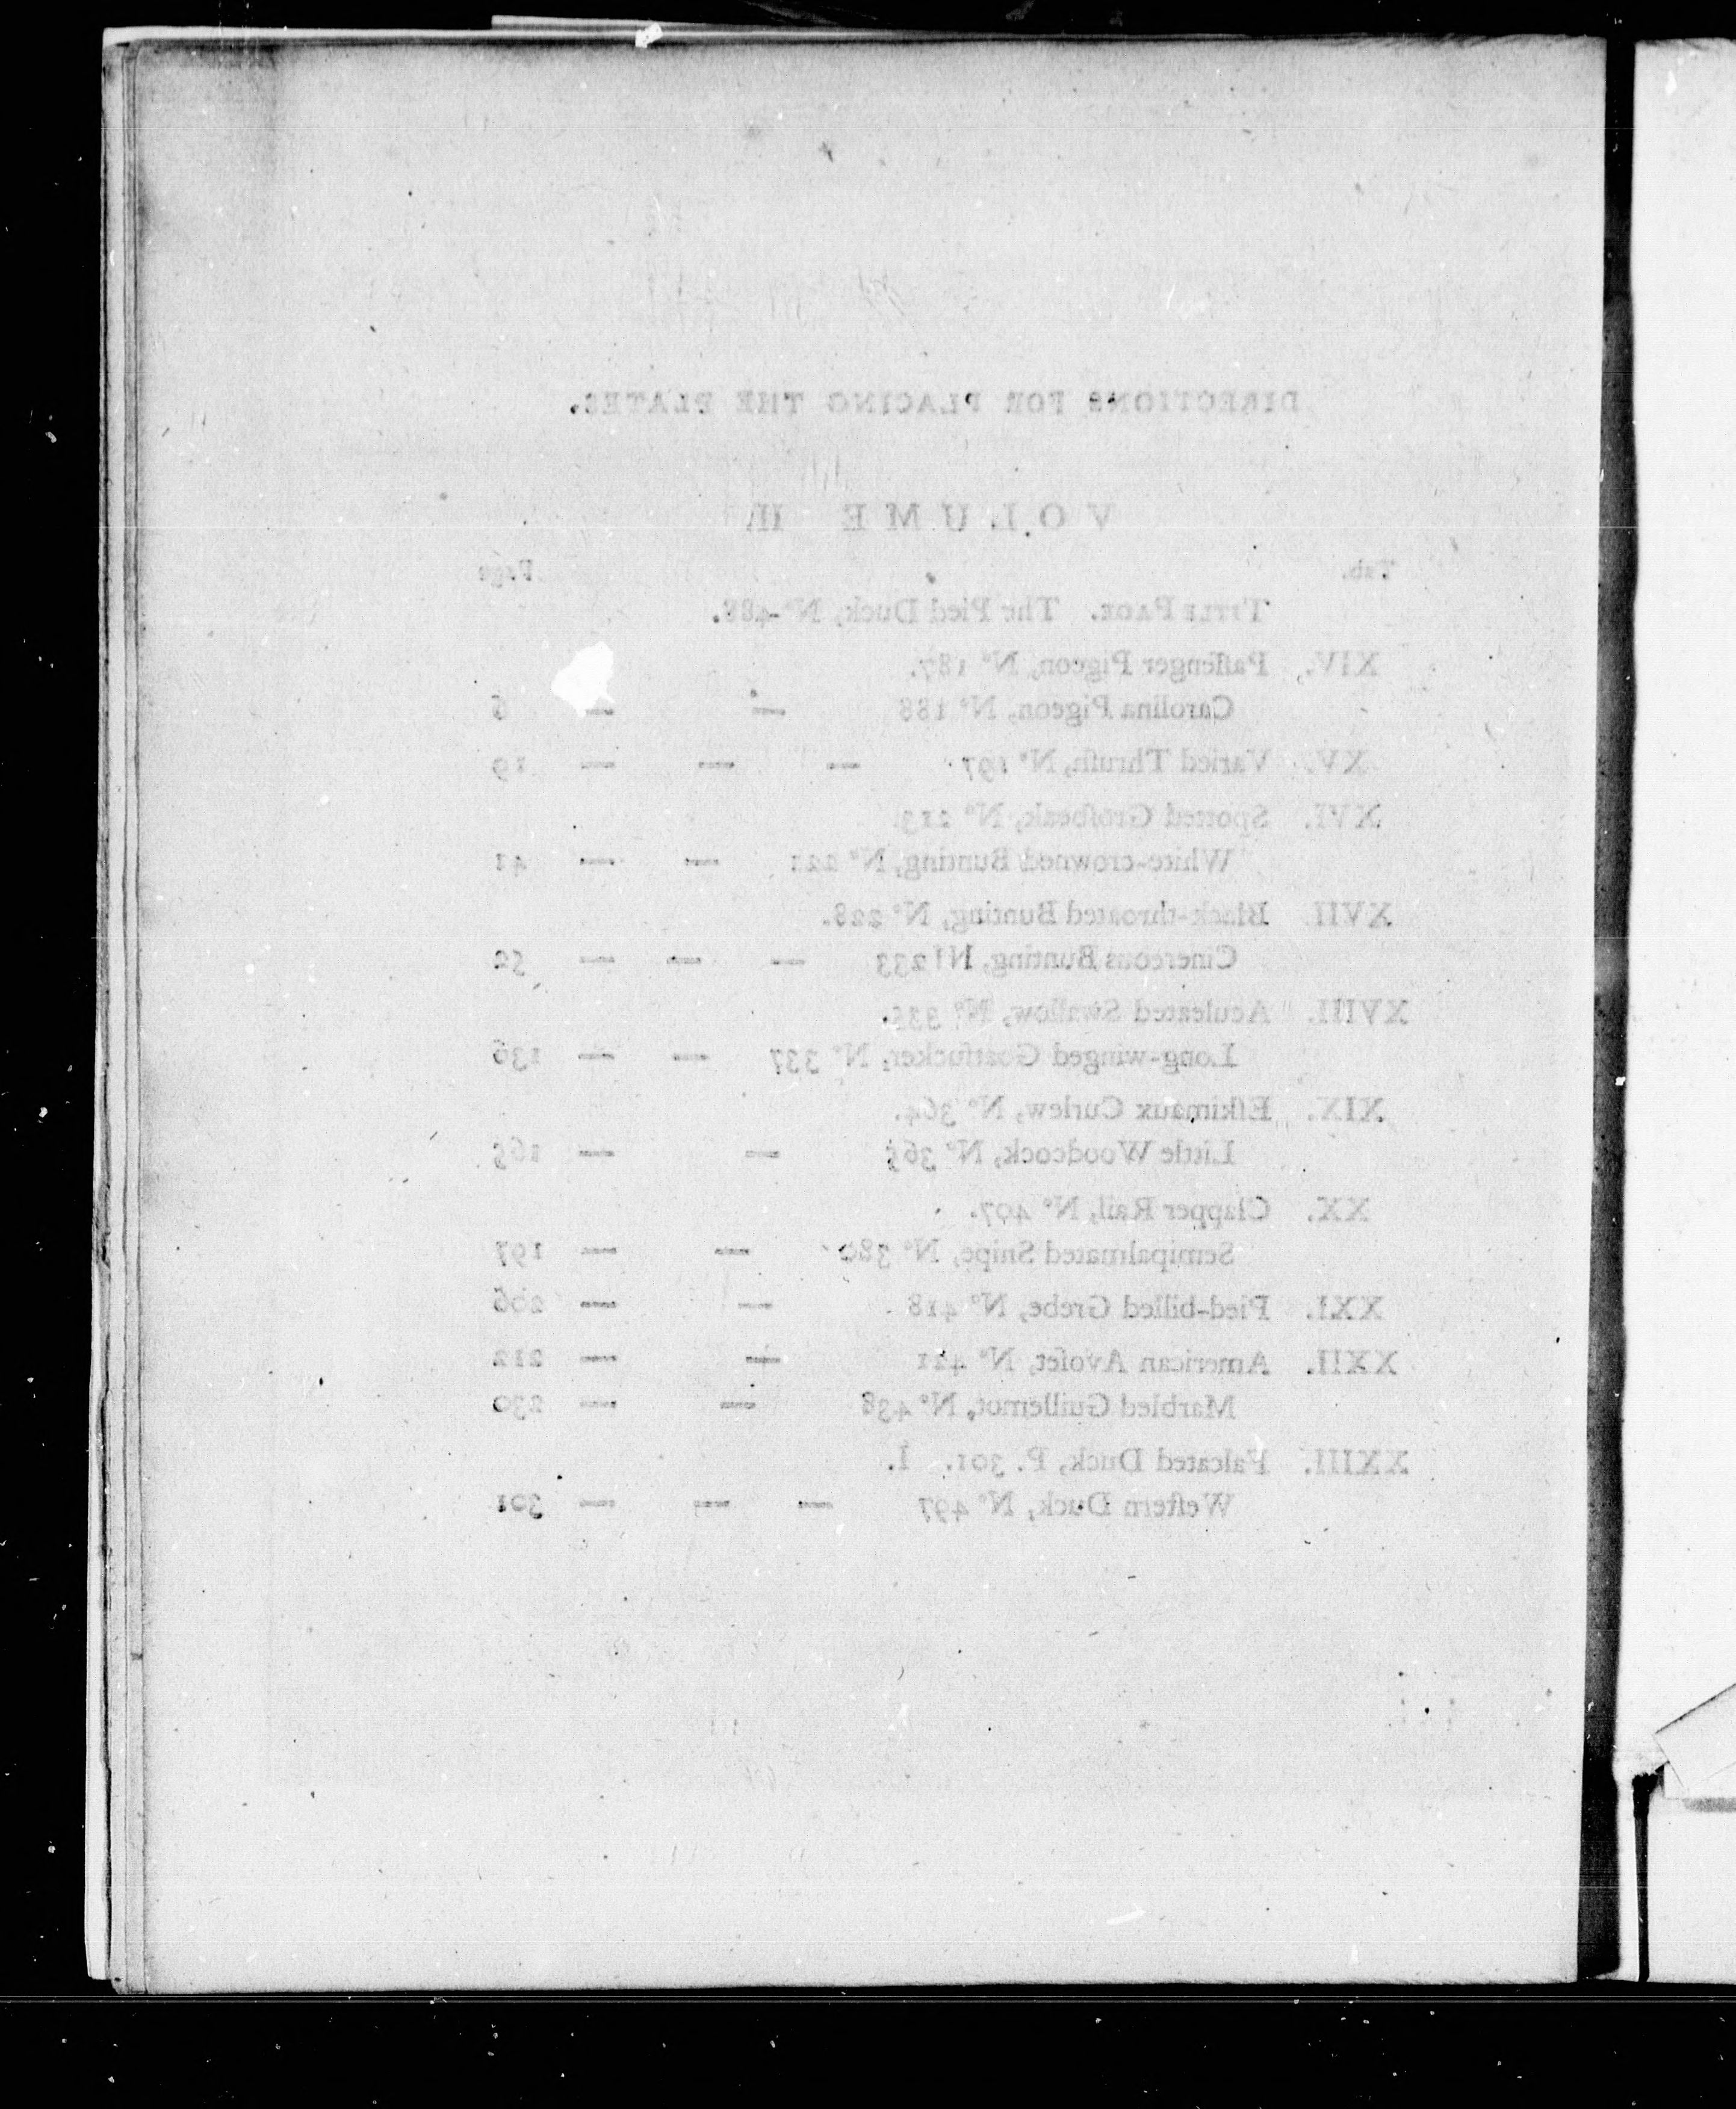 DIRECTIONS FOR PLACING THE PLATES.
VOLUME II.
Tab. Page
TITLE PAGE. The Pied Duck, Nº 488.
XIV. Paſſenger Pigeon, Nº 187.
Carolina Pigeon, Nº 188 — — 6
XV. Varied Thruſh, Nº 197 — — — 19
XVI. Spotted Groſbeak, Nº 213.
White-crowned Bunting, Nº 221 — — 41
XVII. Black-throated Bunting, Nº 228.
Cinereous Bunting, Nº 233 — — — 52
XVIII. Aculeated Swallow, Nº 335.
Long-winged Goatſucker, Nº 337 — — 136
XIX. Eſkimaux Curlew, Nº 364.
Little Woodcock, Nº 365 — — 165
XX. Clapper Rail, Nº 407.
Semipalmated Snipe, Nº 380 — — 197
XXI. Pied-billed Grebe, Nº 418 — — 206
XXII. American Avoſet, Nº 421 — — 212
Marbled Guillemot, Nº 438 — — 230
XXIII. Falcated Duck, P. 301. I.
Weſtern Duck, Nº 497 — — — 301